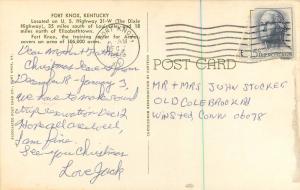 FORT KNOX, KENTUCKY
Located on U. S. Highway 31-W (The Dixie
Highway), 35 miles south of Louisville and 18
miles north of Elizabethtown.
Fort Knox, the training center for Armor,
covers an area of 106,000 acres.
Dear Mother & Dad,
Christmas leave is from
December 18 - January 3,
we have to make round
trip reservation Dec 12
Hope all are well,
I am fine.
See you Christmas
Love Jack
POST CARD
MR + MRS JOHN STOCKER
OLD COLEBROOK RD
WINSTED, CONN 06098